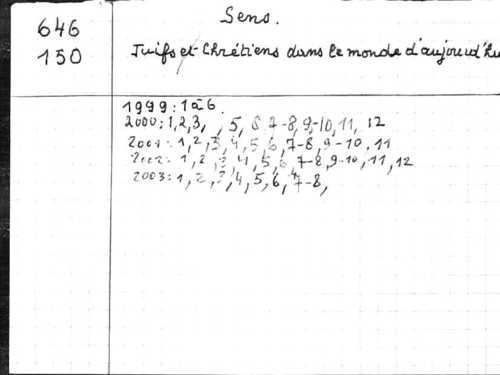 Sens.
646
150
Juifs et Chrétiens dans le monde d'aujourd'hu
1999 : 1 à 6.
2000 : 1, 2, 3, , 5, 6 7-8, 9-10, 11, 12
2001 : 1, 2, 3, 4, 5, 6, 7-8, 9-10, 11
2002 : 1, 2, 3, 4, 5, 6, 7-8, 9-10, 11, 12
2003 : 1, 2, 3, 4, 5, 6, 7-8,